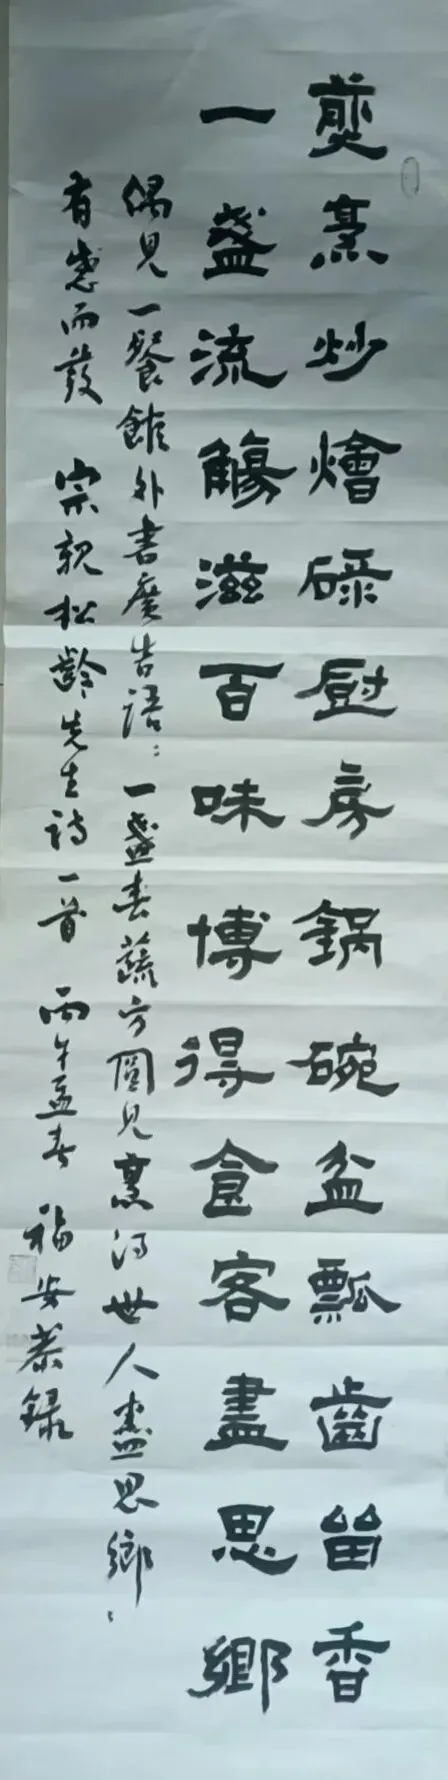 煎烹炒燴碌厨房鍋碗盆瓢齒留香
一盞流觴滋百味博得食客盡思鄉
偶見一餐館外書廣告语：一盞春蔬方圆見烹得世人盡思鄉、
有感而發 宗親松齡先生詩一首 丙午孟春 福安恭録